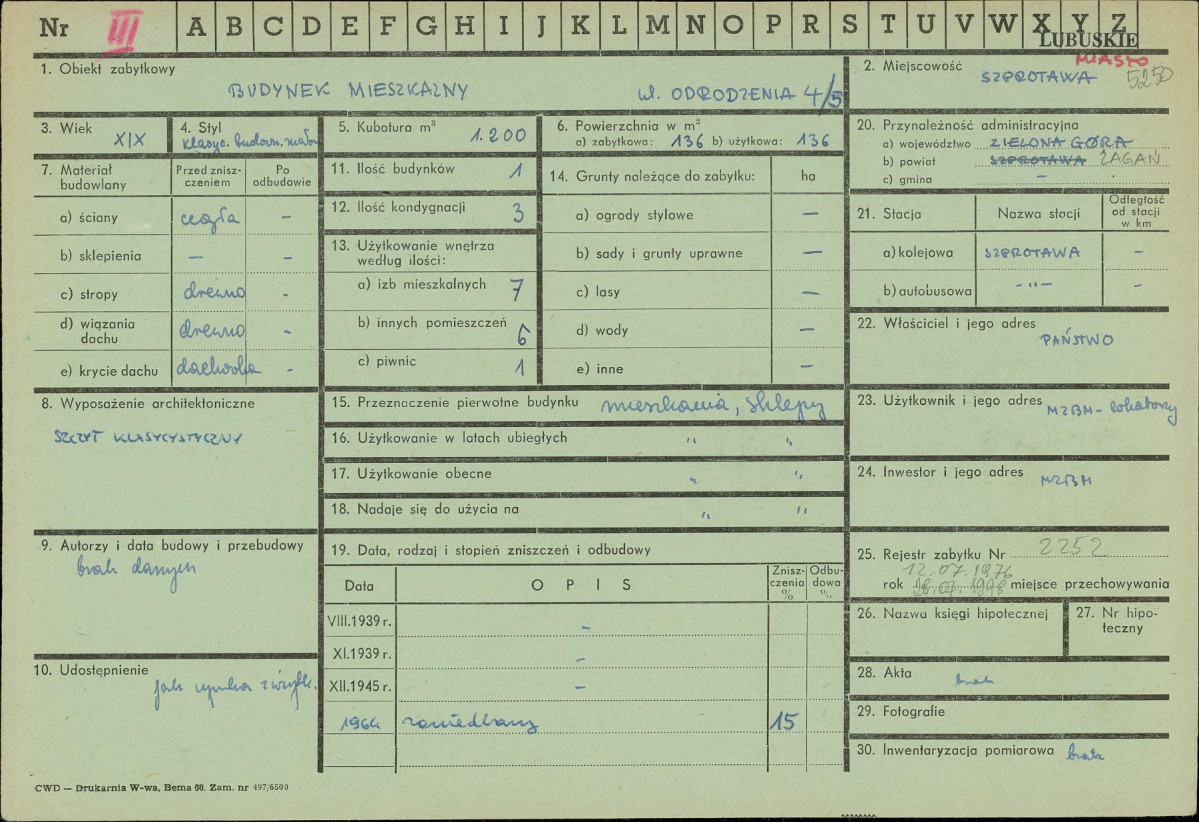 Nr III A B C D E F G H I J K L M N O P R S T U V W X Y Z
LUBUSKIE
1. Obiekt zabytkowy
BUDYNEK MIESZKALNY ul. ODRODZENIA 4/5
2. Miejscowość MIASTO
SZPROTAWA 5250
3. Wiek
XIX
4. Styl
klasyc. budown.
5. Kubatura m³
1.200
6. Powierzchnia w m²
a) zabytkowa: 136 b) użytkowa: 136
20. Przynależność administracyjna
a) województwo ZIELONA GÓRA
b) powiat SZPROTAWA ŻAGAŃ
c) gmina –
7. Materiał budowlany
Przed znisz-
czeniem
Po
odbudowie
a) ściany cegła –
b) sklepienia – –
c) stropy drewno -
d) wiązania
dachu drewno -
e) krycie dachu dachówka -
11. Ilość budynków 1
12. Ilość kondygnacji 3
13. Użytkowanie wnętrza
według ilości:
a) izb mieszkalnych 7
b) innych pomieszczeń 6
c) piwnic 1
14. Grunty należące do zabytku: ha
a) ogrody stylowe –
b) sady i grunty uprawne –
c) lasy –
d) wody –
e) inne –
21. Stacja Nazwa stacji
Odległość
od stacji
w km
a) kolejowa SZPROTAWA –
b) autobusowa -"- –
22. Właściciel i jego adres
PAŃSTWO
8. Wyposażenie architektoniczne
SZCZYT KLASYCYSTYCZNY
15. Przeznaczenie pierwotne budynku mieszkania, sklepy
16. Użytkowanie w latach ubiegłych " "
17. Użytkowanie obecne " "
18. Nadaje się do użycia na " "
23. Użytkownik i jego adres
MZBM - lokatorzy
24. Inwestor i jego adres
MZBM
9. Autorzy i data budowy i przebudowy
brak danych
19. Data, rodzaj i stopień zniszczeń i odbudowy
Data OPIS
Znisz-
czenia
%
Odbu-
dowa
%
VIII.1939 r. –
XI.1939 r. –
XII.1945 r. –
1964 zaniedbany 15
25. Rejestr zabytku Nr 2252
12.07.1976
rok miejsce przechowywania
26. Nazwa księgi hipotecznej
27. Nr hipo-
teczny
10. Udostępnienie
jak wynika z użytk.
28. Akta brak
29. Fotografie
30. Inwentaryzacja pomiarowa brak
CWD — Drukarnia W-wa, Bema 60. Zam. nr 497/6500